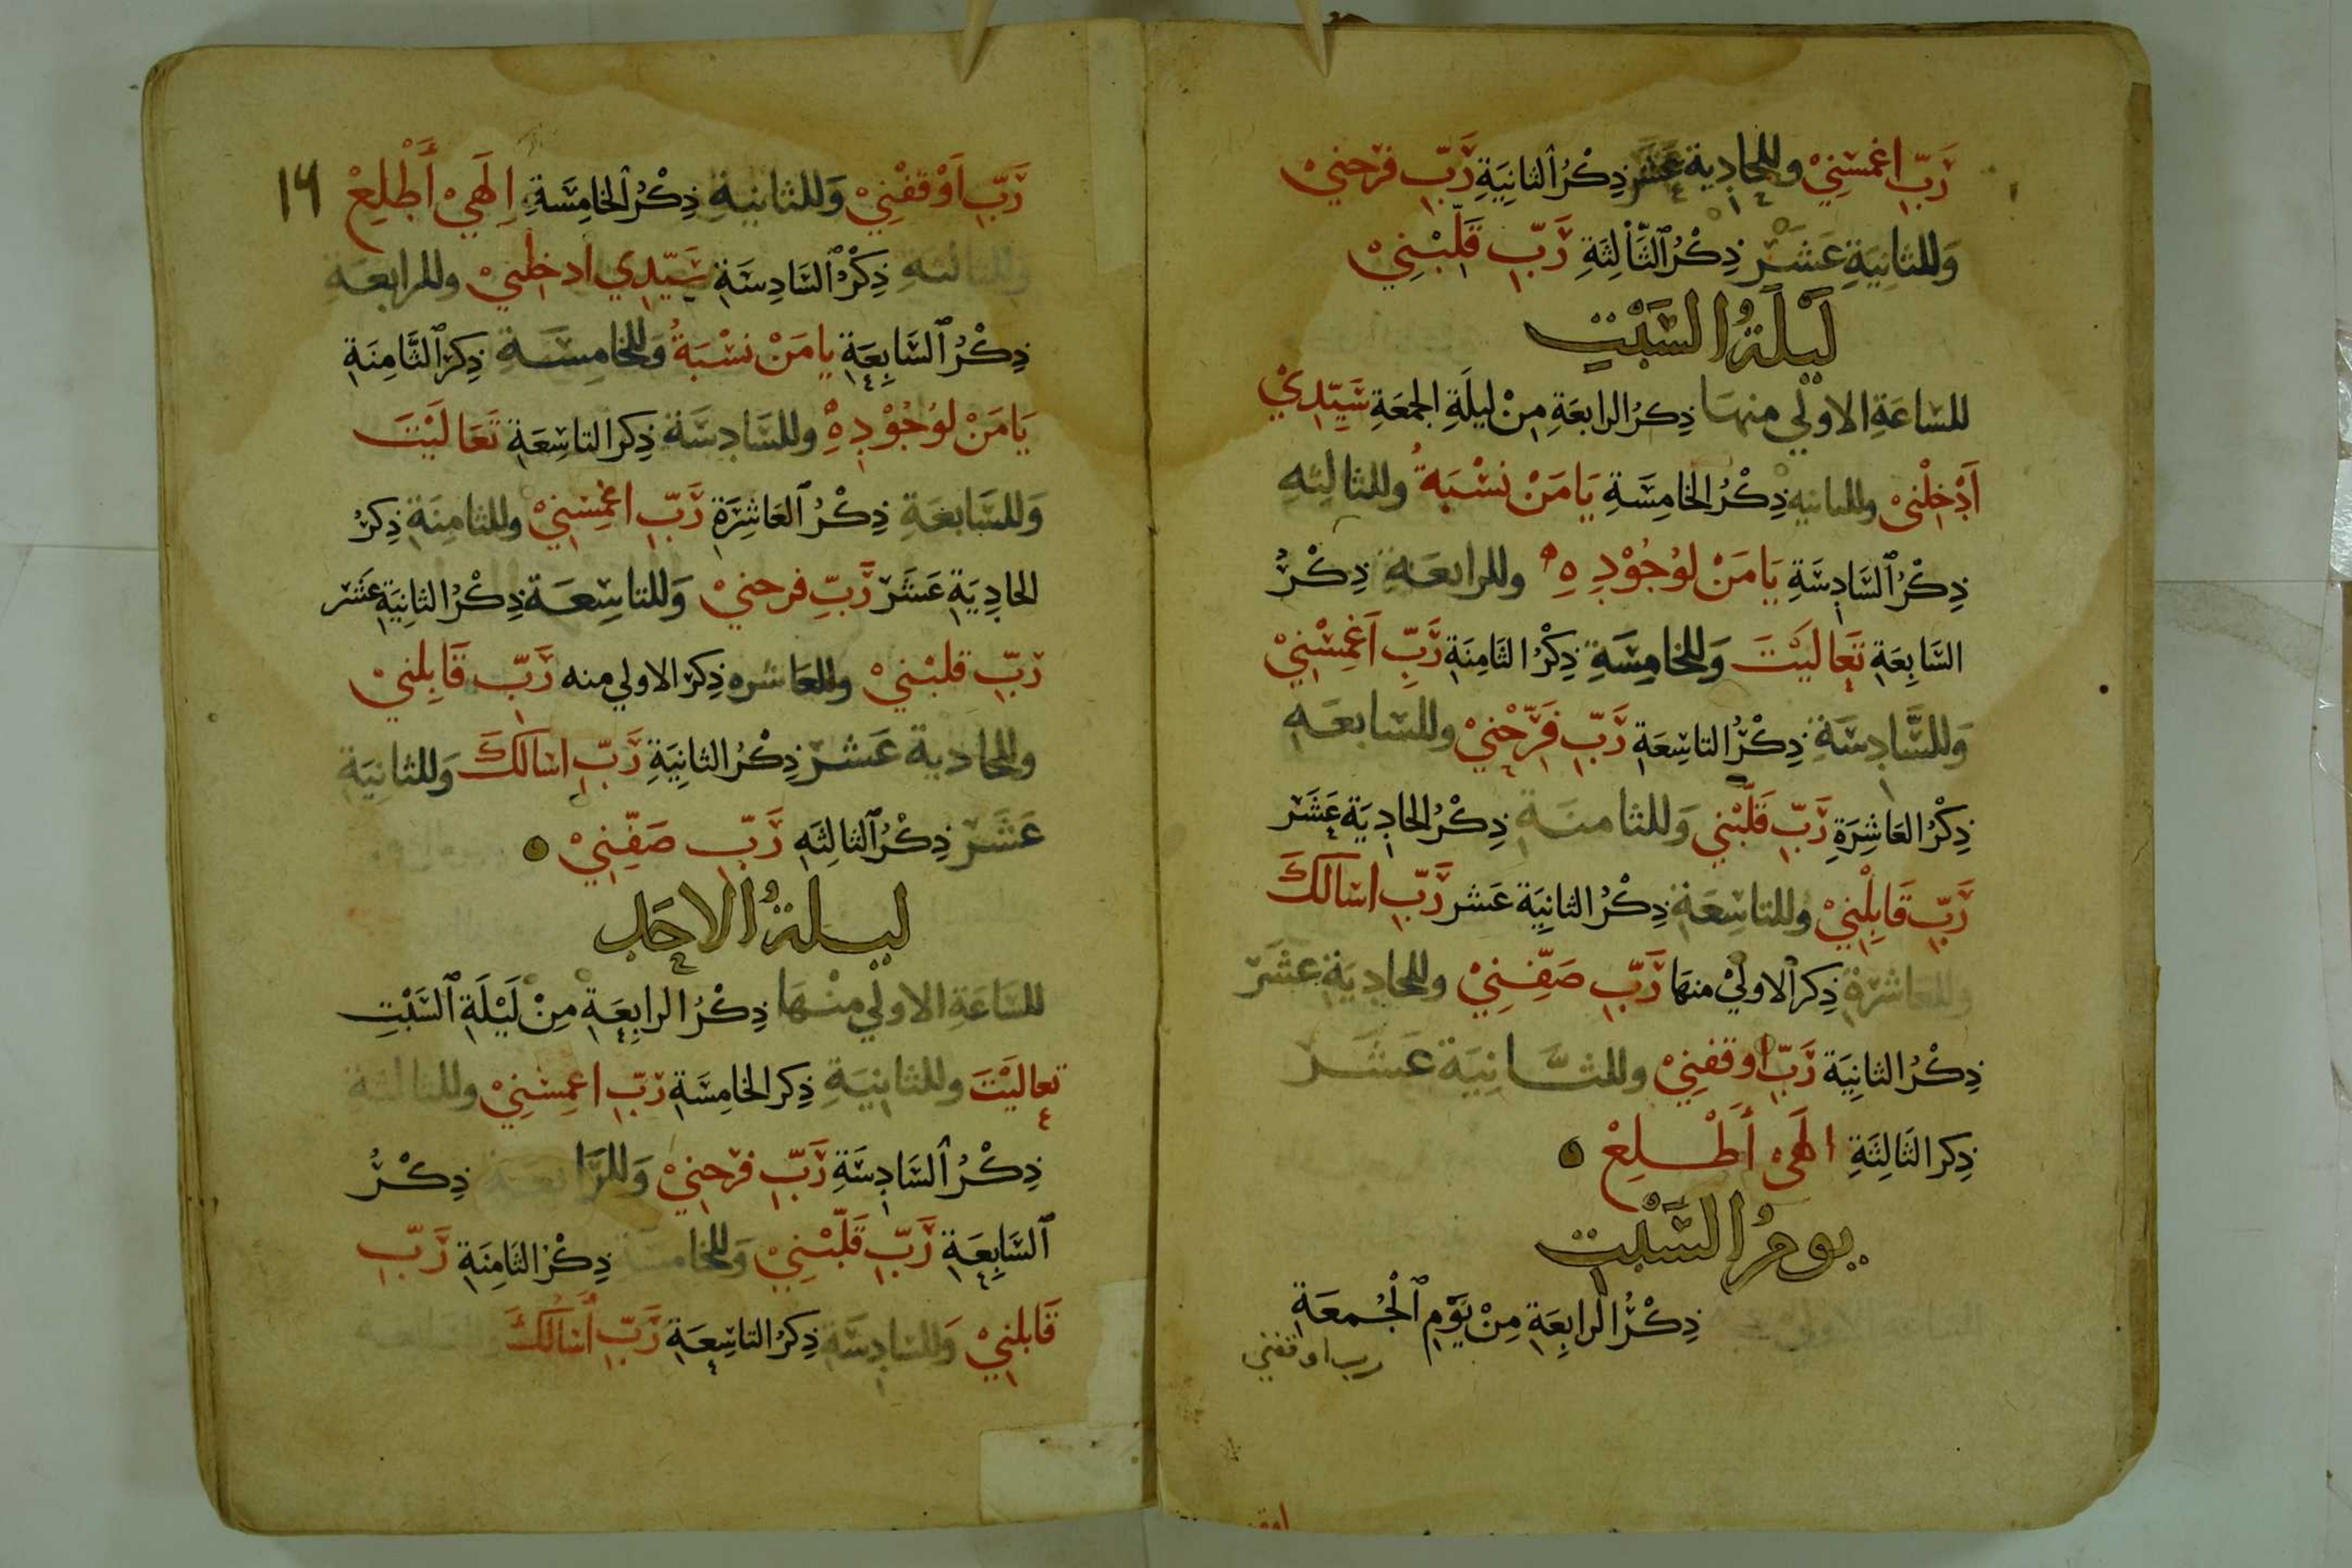 رَبِّ اغمسْنِيْ وللحادية عَشَر ذِكْرُ الثانِيَةِ رَبِّ فرحنيْ
وَللثانِيَةِ عَشَرْ ذِكْرُ ٱلثَّالِثَةِ رَبِّ قَلِّبْنِيْ
لَيْلَةُ السَّبْتِ
للسَاعَةِ الاولي منها ذِكرُ الرابعَةِ مِنْ ليلَةِ الجمعَةِ سَيِّدِيْ
اَدْخِلْنيْ وللثانيه ذِكْرُ الخامِسَةِ يَا مَنْ نسْبَةُ وللثالِثهِ
ذِكْرُ ٱلسَّادِسَةِ يَا مَنْ لوُجُوْدِهِ وللرابعَةِ ذِكْرُ
السَّابِعَةِ تَعَالَيْتَ وَللخامِسَةِ ذِكْرُ الثَامِنَةِ رَبِّ اَغمِسْنِيْ
وَللسَّادِسَةِ ذِكْرُ التاسِعَةِ رَبِّ فَرِّحْنيْ وللسَابعَهِ
ذِكْرُ العَاشِرَةِ رَبِّ قَلِّبْني وَللثامنَةِ ذِكْرُ الحادِيَةِ عَشَرْ
رَبِّ قَابِلْنِيْ وللتاسِعَةِ ذِكْرُ الثانِيَةِ عَشر رَبِّ اسَالكَ
وللعَاشرَةِ ذِكر ٱلاوليْ منهَا رَبِّ صَفِّنِيْ وللحادِيَةِ عشَرْ
ذِكْرُ الثانِيَةِ رَبِّ اوقفنِيْ وللثَّانِيَة عَشَرْ
ذِكر الثَالِثَةِ الهَيْ اَطْلِعْ
يومُ السَّبْتِ
الساعة الاولي ذِكْرُ الرابِعَةِ مِنْ يَوْمِ ٱلْجُمعَةِ
رب اوقفني
١٩
رَبِّ اَوْقفْنِيْ وَللثانيةِ ذِكْرُ ٱلخامِسَةِ اِلَهيْ اَطْلِعْ
وللثالثهِ ذِكْرُ ٱلسَّادِسَةِ سَيِّدِي ادخلنيْ وللرابعَةِ
ذِكْرُ ٱلسَّابِعَةِ يا مَنْ نسْبَةُ وَللخامِسَةِ ذِكرُ ٱلثَّامِنَةِ
يَا مَنْ لوُجُوْدِهِ وللسَادِسَةِ ذِكر التاسِعَةِ تَعَالَيْتَ
وَللسَّابعَةِ ذِكْرُ ٱلعَاشِرَةِ رَبِّ اغْمِسْنِيْ وللثامِنَةِ ذِكرُ
الحادِيَةِ عَشَرْ رَبِّ فرحنيْ وَللتاسِعَةِ ذِكْرُ الثانِيَةِ عَشر
رَبِّ قلبْنيْ وللعَاشره ذِكرُ الاولي منه رَبِّ قَابِلنيْ
وللحادية عَشرْ ذِكْرُ الثانِيَةِ رَبِّ اسَالكَ وَللثانِيَة
عَشَرْ ذِكْرُ ٱلثالِثَهِ رَبِّ صَفِّنِيْ
ليلةُ الاحَدِ
للسَاعَةِ الاولي مِنْهَا ذِكْرُ الرابِعَةِ مِنْ لَيْلَةِ ٱلسَّبْتِ
تعاليْتَ وللثانِيَةِ ذِكر الخامِسَةِ رَبِّ اغمِسْنِيْ وللثالثة
ذِكْرُ ٱلسَادِسَةِ رَبِّ فرّحنِيْ وَللرَّابعَة ذِكْرُ
ٱلسَّابِعَةِ رَبِّ قَلِّبْنِيْ وَللخامسَة ذِكْرُ الثَامِنَةِ رَبِّ
قَابلنِيْ وَللسادِسَةِ ذِكرُ التاسِعَةِ رَبِّ اَسَالكَ وللسابعة